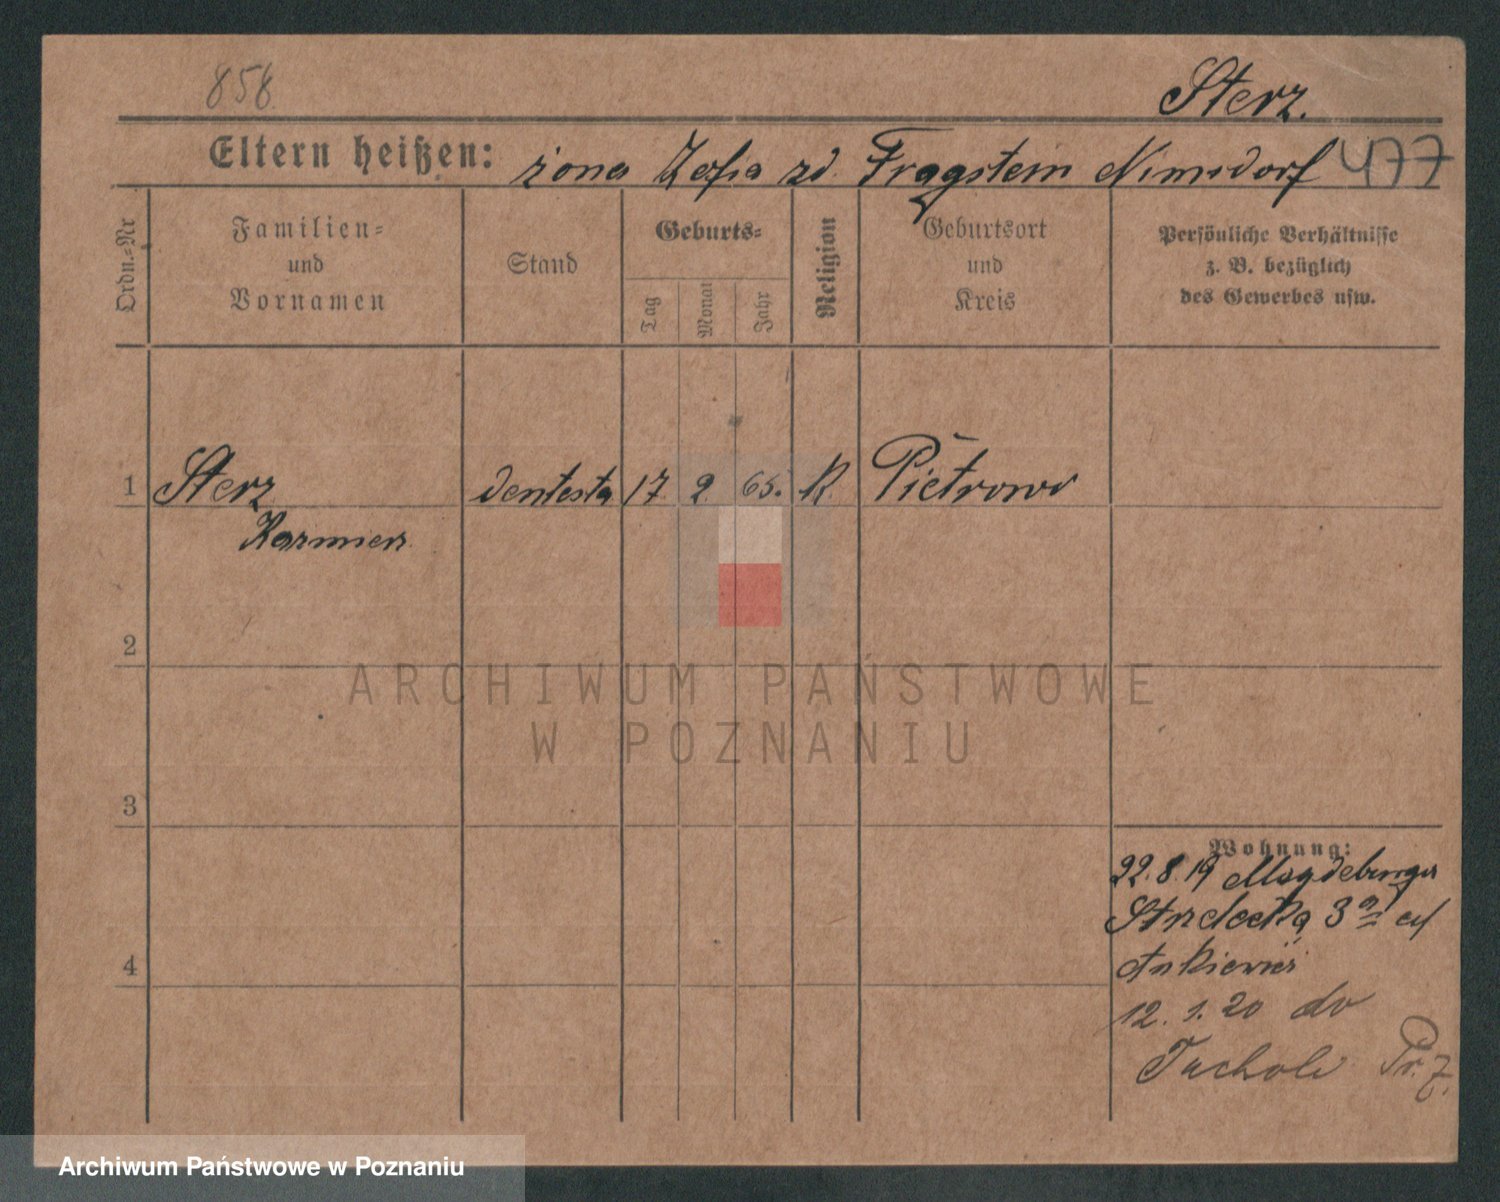 858
Sterz.
Eltern heißen: żona Zofia zd. Fragstein Nimsdorf 477
Ordn.-Nr
Familien-
und
Vornamen
Stand
Geburts-
Tag
Monat
Jahr
Religion
Geburtsort
und
Kreis
Persönliche Verhältnisse
z. B. bezüglich
des Gewerbes usw.
1 Sterz dentesta 17 2 65. K. Pietrowo
Kazmierz
2
ARCHIWUM PAŃSTWOWE
W POZNANIU
3
Wohnung:
22.8.19 Magdeburger
3a
4
12.1.20 do
Tucholi Pr. Z.
Archiwum Państwowe w Poznaniu